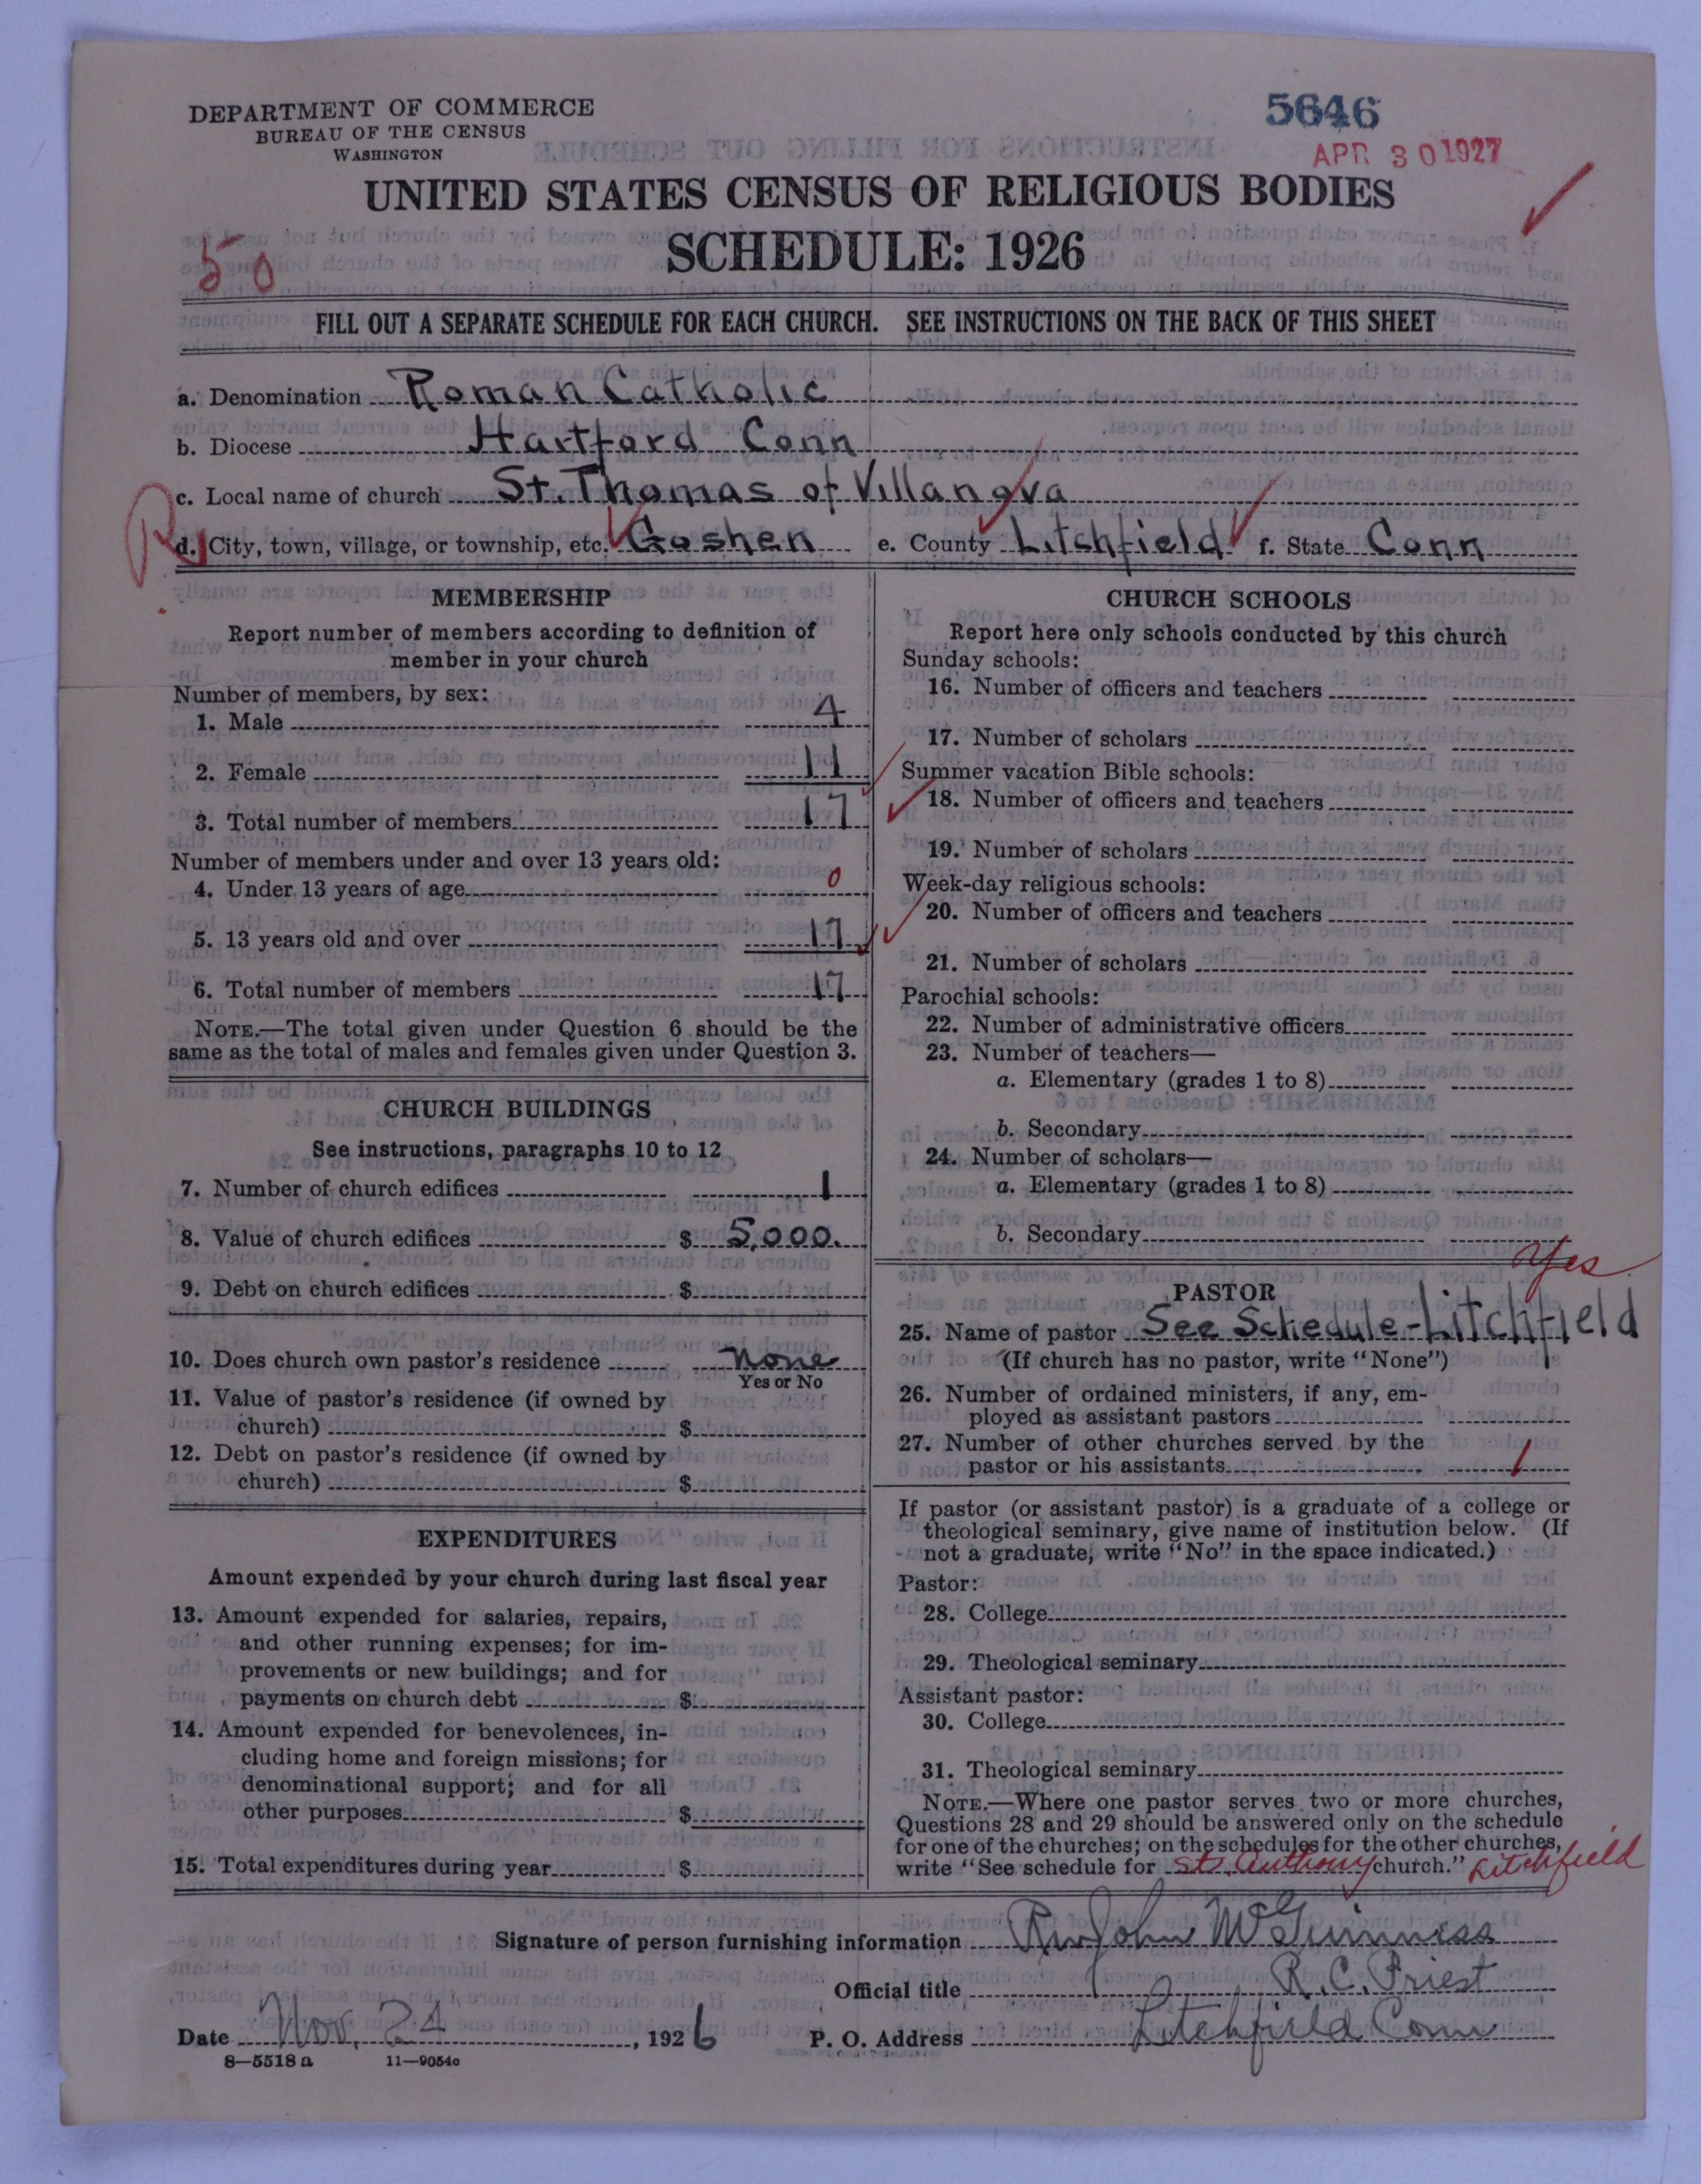 DEPARTMENT OF COMMERCE
BUREAU OF THE CENSUS
WASHINGTON
5646
APR 30 1927
UNITED STATES CENSUS OF RELIGIOUS BODIES
SCHEDULE: 1926
50
FILL OUT A SEPARATE SCHEDULE FOR EACH CHURCH. SEE INSTRUCTIONS ON THE BACK OF THIS SHEET
a. Denomination Roman Catholic
b. Diocese Hartford Conn
c. Local name of church St. Thomas of Villanova
R
d. City, town, village, or township, etc. Goshen e. County Litchfield f. State Conn
MEMBERSHIP
Report number of members according to definition of
member in your church
Number of members, by sex:
1. Male 4
2. Female 11
3. Total number of members 17
Number of members under and over 13 years old:
4. Under 13 years of age 0
5. 13 years old and over 17
6. Total number of members 17
NOTE.—The total given under Question 6 should be the
same as the total of males and females given under Question 3.
CHURCH BUILDINGS
See instructions, paragraphs 10 to 12
7. Number of church edifices 1
8. Value of church edifices $ 5,000.
9. Debt on church edifices $
10. Does church own pastor's residence none
Yes or No
11. Value of pastor's residence (if owned by
church) $
12. Debt on pastor's residence (if owned by
church) $
EXPENDITURES
Amount expended by your church during last fiscal year
13. Amount expended for salaries, repairs,
and other running expenses; for im-
provements or new buildings; and for
payments on church debt $
14. Amount expended for benevolences, in-
cluding home and foreign missions; for
denominational support; and for all
other purposes $
15. Total expenditures during year $
CHURCH SCHOOLS
Report here only schools conducted by this church
Sunday schools:
16. Number of officers and teachers
17. Number of scholars
Summer vacation Bible schools:
18. Number of officers and teachers
19. Number of scholars
Week-day religious schools:
20. Number of officers and teachers
21. Number of scholars
Parochial schools:
22. Number of administrative officers
23. Number of teachers—
a. Elementary (grades 1 to 8)
b. Secondary
24. Number of scholars—
a. Elementary (grades 1 to 8)
b. Secondary
yes
PASTOR
25. Name of pastor See Schedule-Litchfield
(If church has no pastor, write "None")
26. Number of ordained ministers, if any, em-
ployed as assistant pastors
27. Number of other churches served by the
pastor or his assistants 1
If pastor (or assistant pastor) is a graduate of a college or
theological seminary, give name of institution below. (If
not a graduate, write "No" in the space indicated.)
Pastor:
28. College
29. Theological seminary
Assistant pastor:
30. College
31. Theological seminary
NOTE.—Where one pastor serves two or more churches,
Questions 28 and 29 should be answered only on the schedule
for one of the churches; on the schedules for the other churches,
write "See schedule for St. Anthony church." Litchfield
Signature of person furnishing information Rev John McGuinness
Official title R. C. Priest
Date Nov. 24, 1926 P. O. Address Litchfield Conn
8—5518 a 11—9054c